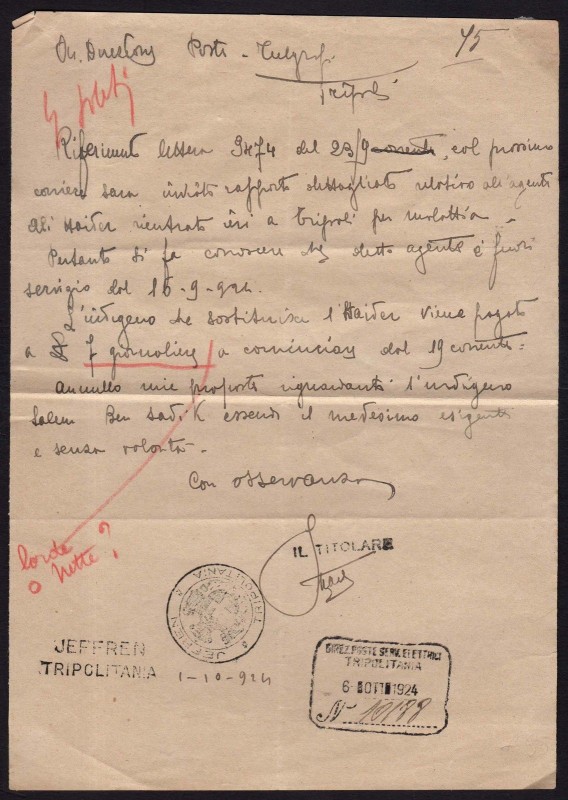 On. Direttore Poste - Telegrafi
75
Tripoli
Riferimento lettera 9474 del 23/9 corrente, col prossimo
corriere sarà inviato rapporto dettagliato relativo all'agente
Ali Haider rientrato ieri a Tripoli per malattia -
Pertanto si fa conoscere che detto agente è fuori
servizio dal 16-9-924.
L'indigeno che sostituisce l'Haider viene pagato
a £ 7 giornaliere a cominciare dal 19 corrente -
Annullo mie proposte riguardanti l'indigeno
Salem Ben Sadik essendo il medesimo esigente
e senza volontà -
Con osservanza
lorde
o nette?
IL TITOLARE
JEFFREN TRIPOLITANIA
JEFFREN
TRIPOLITANIA
1-10-924
DIREZ. POSTE SERV. ELETTRICI
TRIPOLITANIA
6 - OTT 1924
N° 10178